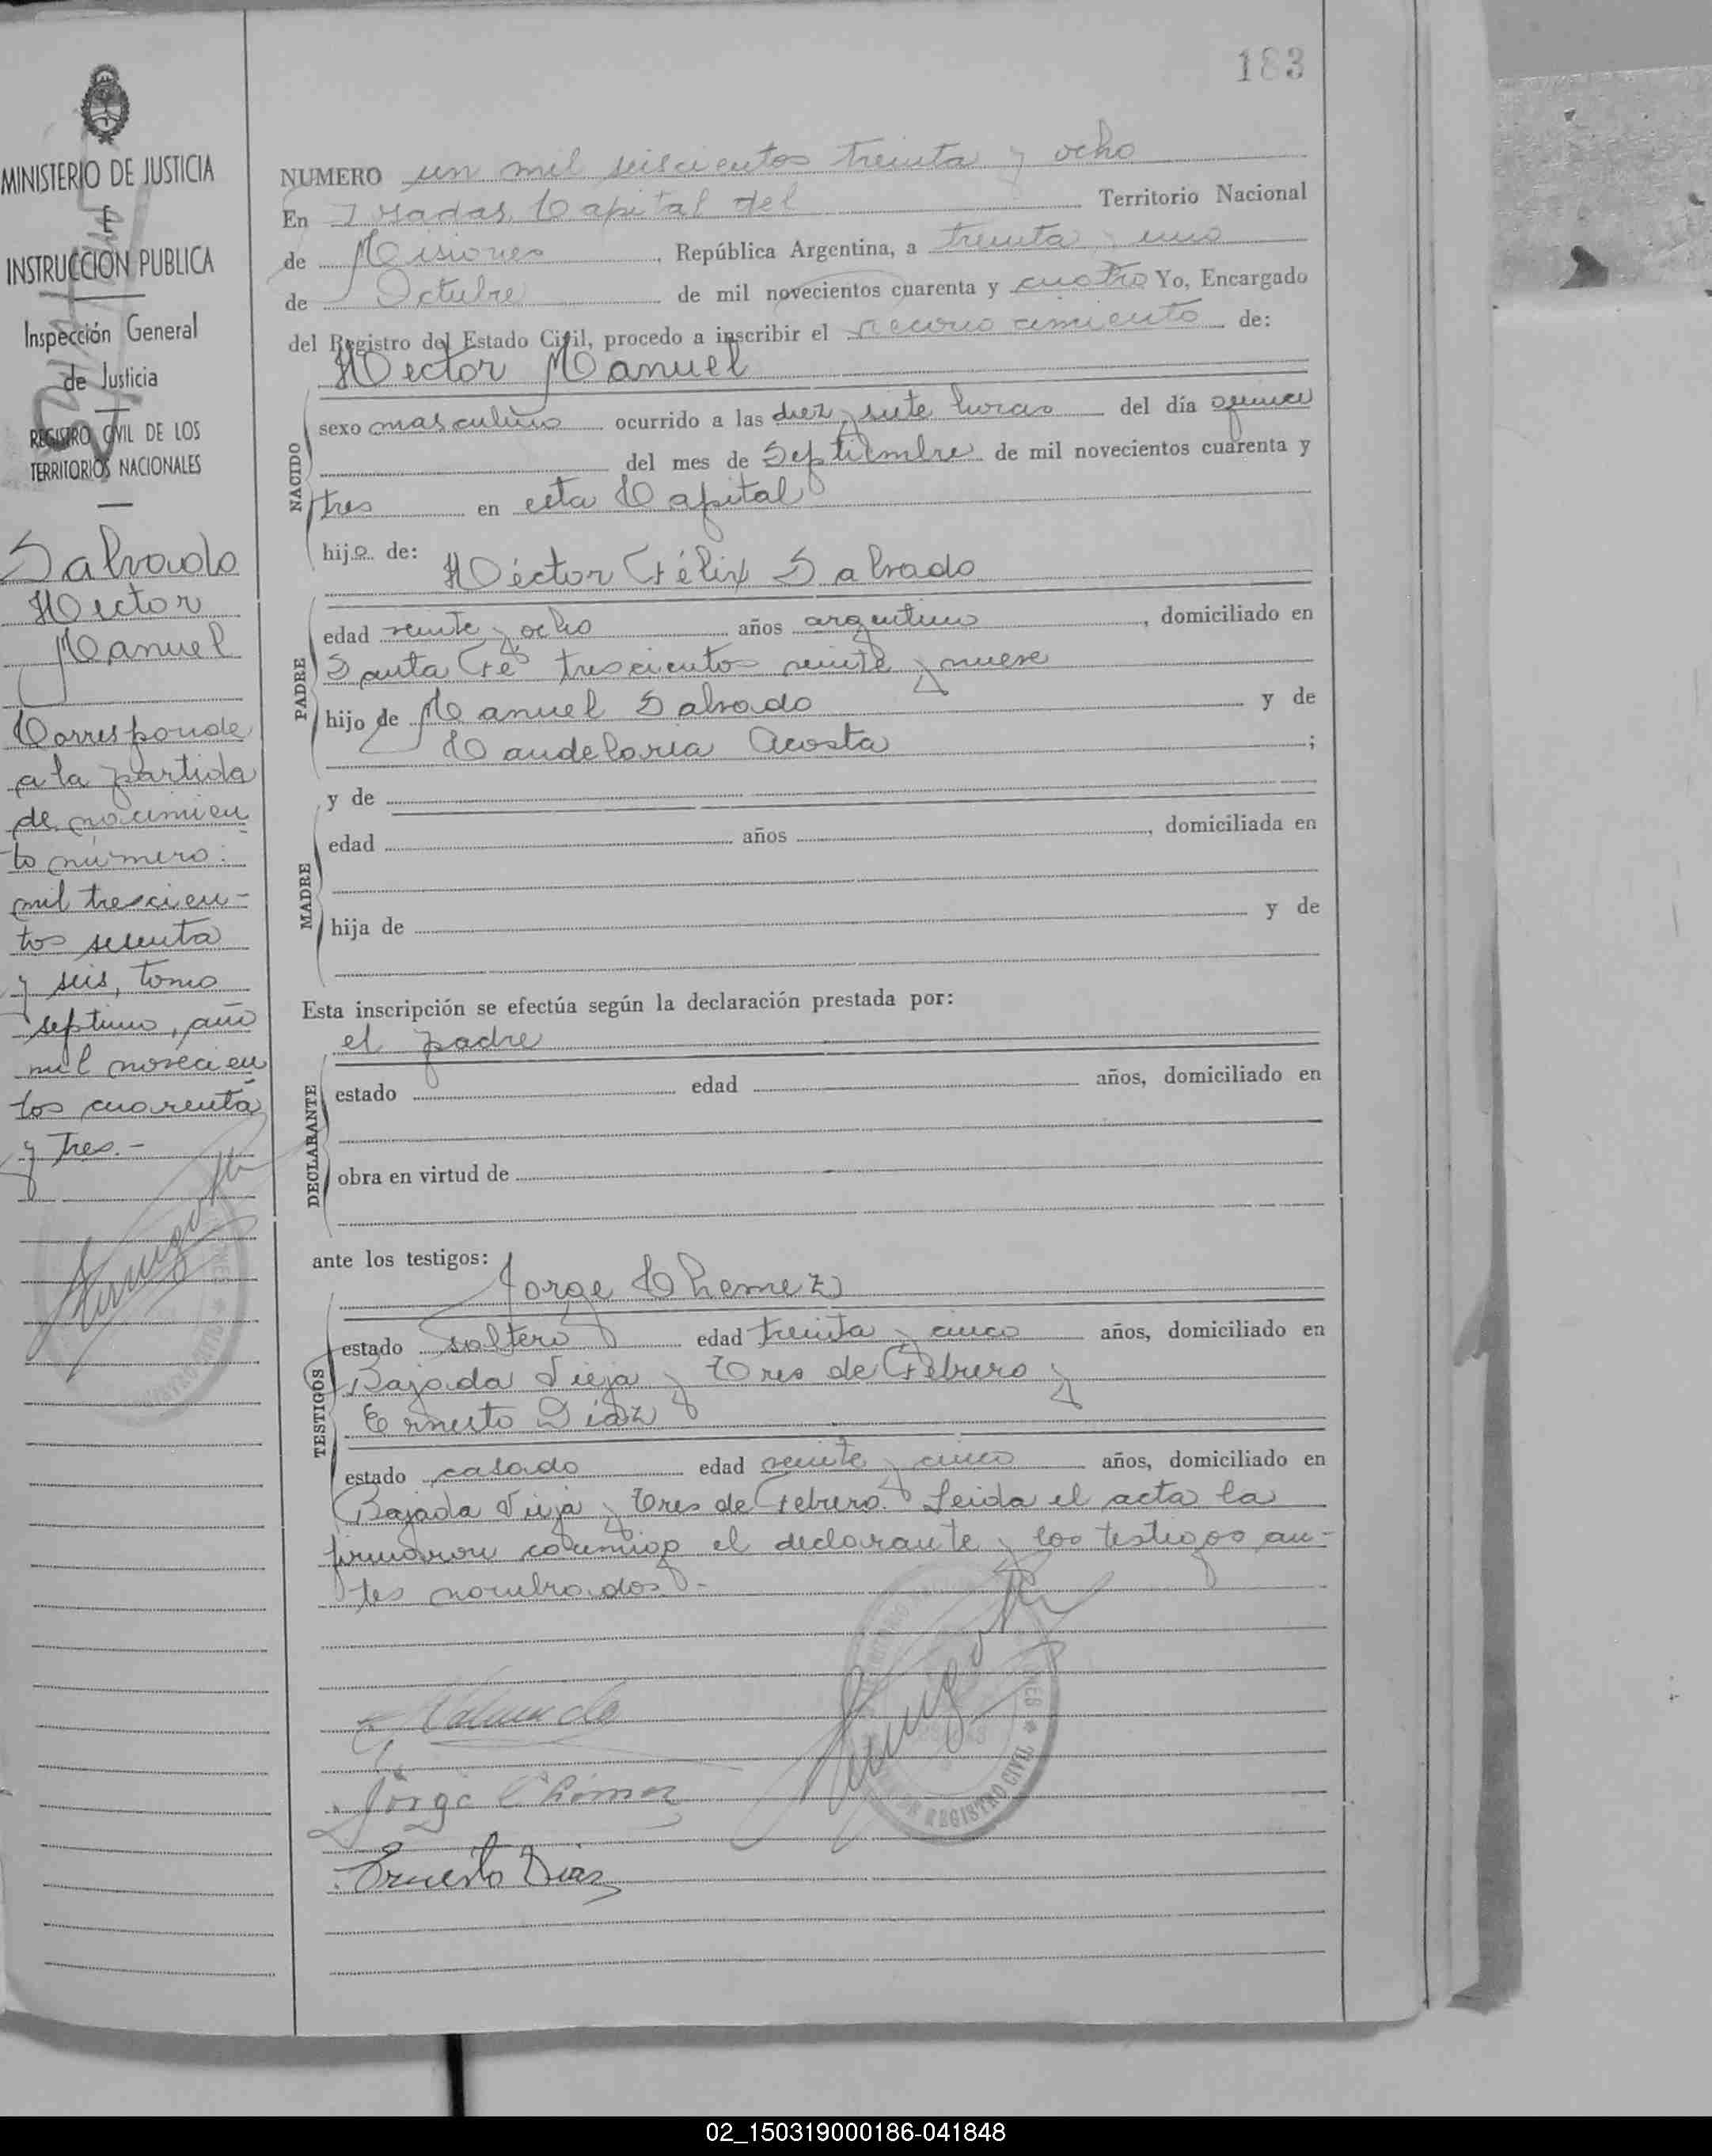 183
MINISTERIO DE JUSTICIA
E
INSTRUCCION PUBLICA
Inspección General
de Justicia
REGISTRO CIVIL DE LOS
TERRITORIOS NACIONALES
Salvado
Hector
Manuel
Corresponde
a la partida
de nacimien
to número:
mil trescien-
tos
y seis, tomo
septimo, año
mil novecien
tos cuarenta
y tres.-
NUMERO un mil seiscientos treinta y ocho
En Posadas, Capital del Territorio Nacional
de Misiones, República Argentina, a treinta y uno
de Octubre de mil novecientos cuarenta y cuatro Yo, Encargado
del Registro del Estado Civil, procedo a inscribir el reconocimiento de:
Hector Manuel
NACIDO
sexo masculino ocurrido a las diez y siete horas del día quince
del mes de Septiembre de mil novecientos cuarenta y
tres en esta Capital
hijo de:
Héctor Félix Salvado
PADRE
edad veinte y ocho años argentino, domiciliado en
Santa Fé trescientos veinte y nueve
hijo de Manuel Salvado y de
Candelaria Acosta;
y de
MADRE
edad años, domiciliada en
hija de y de
Esta inscripción se efectúa según la declaración prestada por:
el padre
DECLARANTE
estado edad años, domiciliado en
obra en virtud de
ante los testigos:
Jorge Chemez
TESTIGOS
estado soltero edad treinta y cinco años, domiciliado en
Bajada Vieja y Tres de Febrero y
Ernesto Diaz
estado casado edad veinte y cinco años, domiciliado en
Bajada Vieja y Tres de Febrero. Leida el acta la
firmaron conmigo el declarante y los testigos an-
tes nombrados.-
REGISTRO CIVIL
Ernesto Dias
02_150319000186-041848